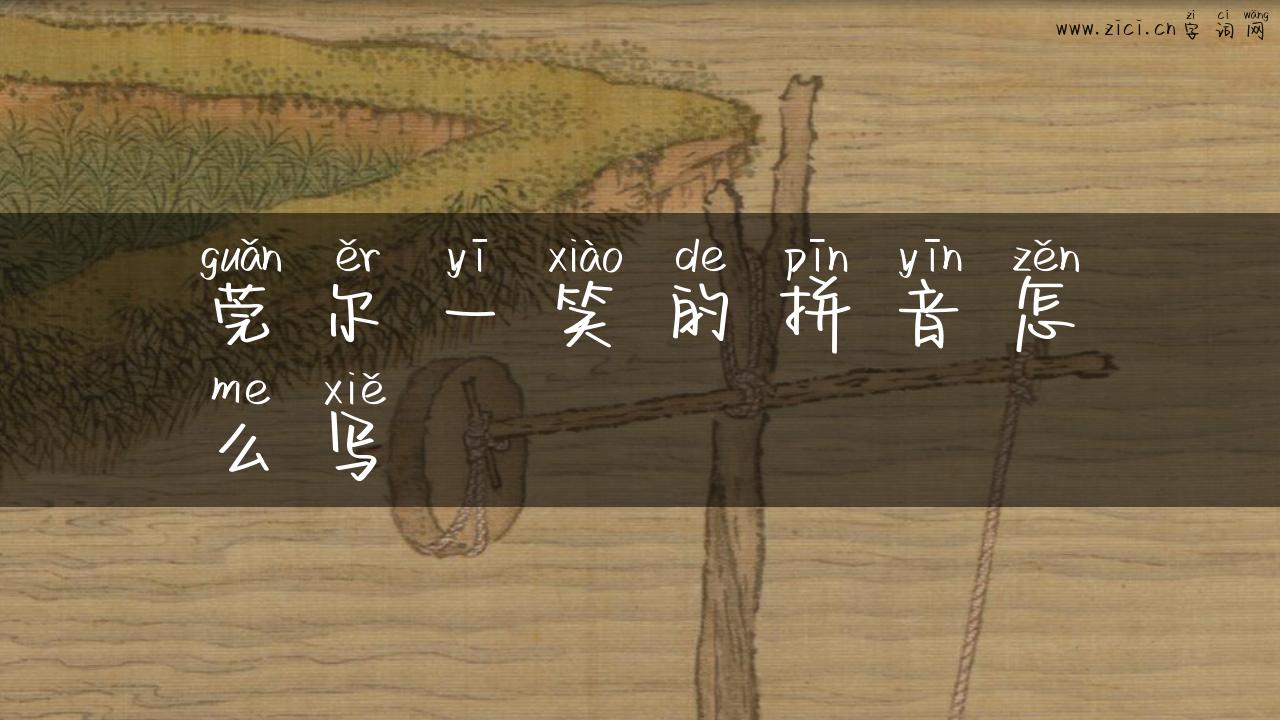 zì cí wǎng
www.zici.cn 字词网
guǎn ěr yī xiào de pīn yīn zěn
莞尔一笑的拼音怎
me xiě
么写